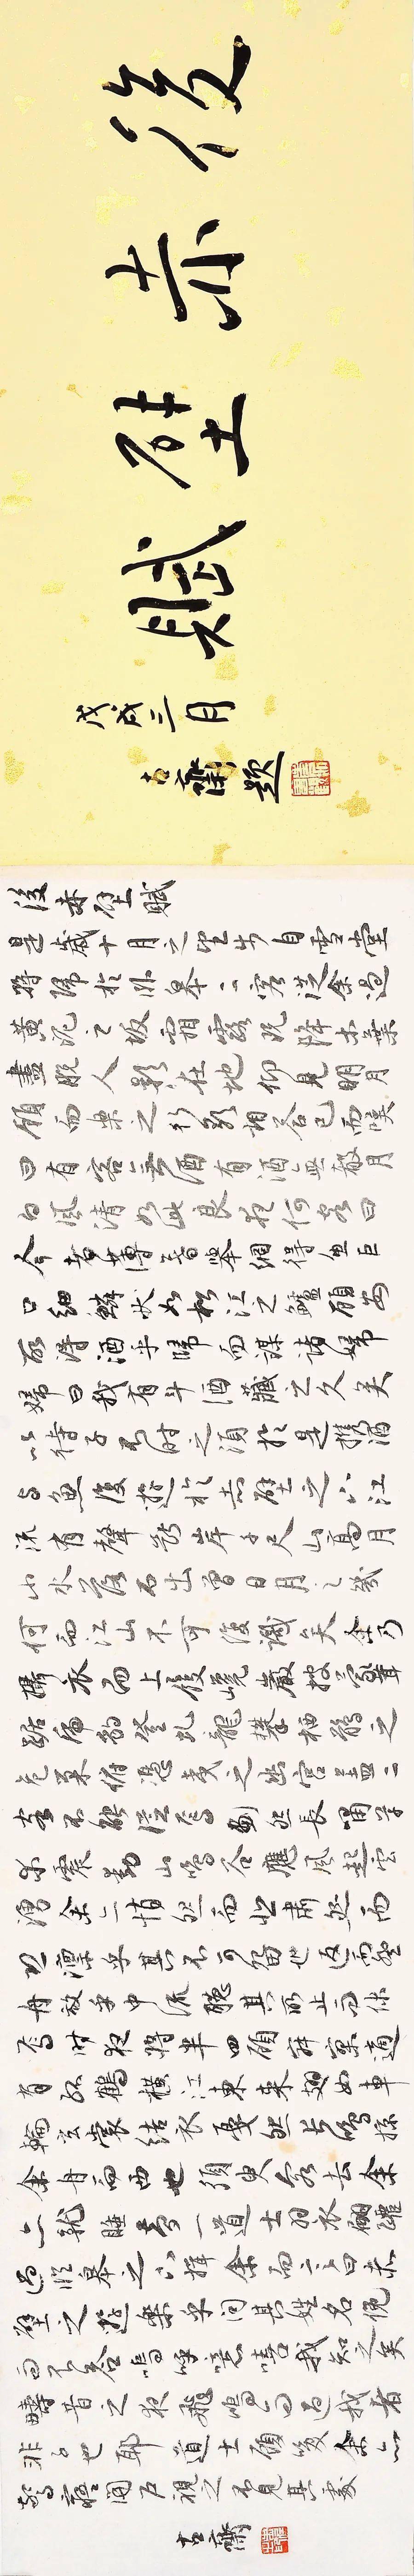 後赤壁賦
戊戌三月
古齋題
後赤壁賦
是歲十月之望步自雪堂
將歸於臨皋二客從余過
黃泥之坂霜露既降木葉
盡脫人影在地仰見明月
顧而樂之行歌相答已而嘆
曰有客無酒有酒無肴月
白風清如此良夜何客曰
今者薄暮舉網得魚巨
口細鱗狀如松江之鱸顧安
所得酒乎歸而謀諸婦
婦曰我有斗酒藏之久矣
以待子不時之須於是攜酒
與魚復遊於赤壁之下江
流有聲斷岸千尺山高月
小水落石出曾日月之幾
何而江山不可復識矣余乃
攝衣而上履巉巖披蒙茸
踞虎豹登虬龍攀棲鶻之
危巢俯馮夷之幽宮蓋二
客不能從焉劃然長嘯草
木震動山鳴谷應風起雲
湧余亦悄然而悲肅然而
恐凜乎其不可留也返而登
舟放乎中流聽其所止而休
焉時夜將半四顧寂寥適
有孤鶴橫江東來翅如車
輪玄裳縞衣戛然長鳴掠
余舟而西也須臾客去余
亦就睡夢一道士羽衣翩躚
過臨皋之下揖余而言曰赤
壁之遊樂乎問其姓名俛
而不答嗚呼噫嘻我知之矣
疇昔之夜飛鳴而過我者
非子也耶道士顧笑余亦
驚寤開戶視之不見其處
古齋